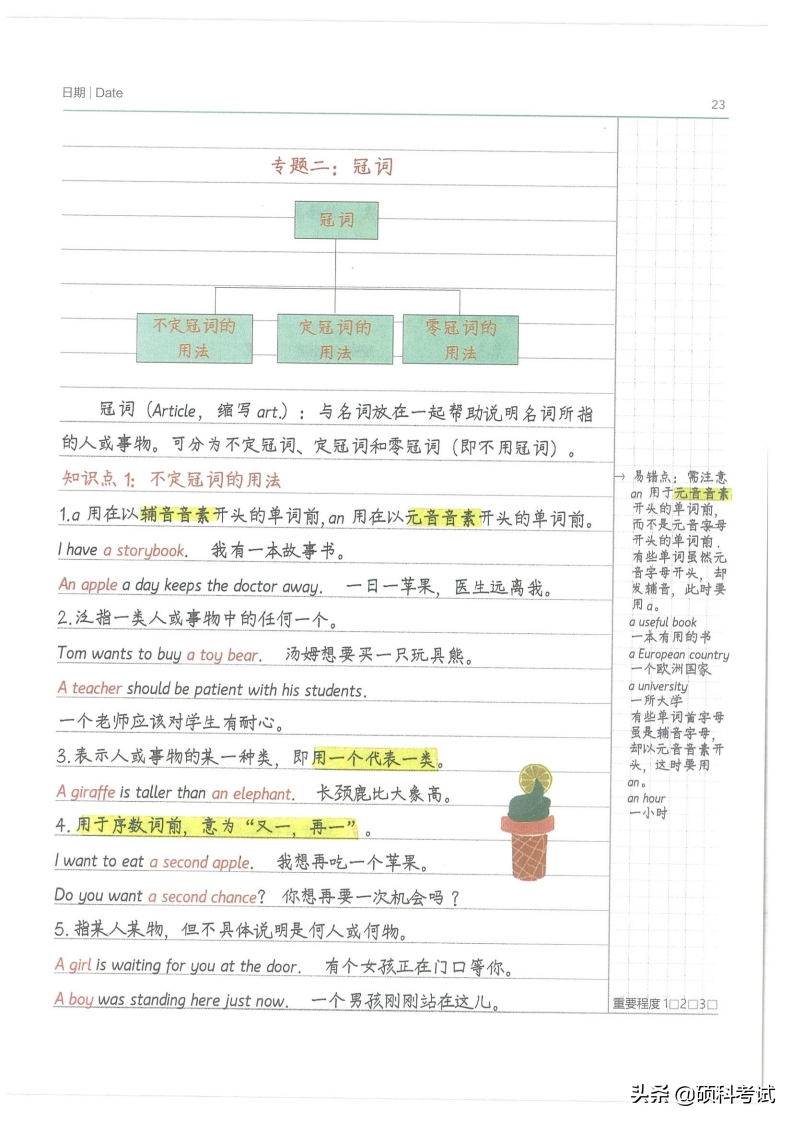 日期 | Date
23
专题二：冠词
冠词
不定冠词的
用法
定冠词的
用法
零冠词的
用法
冠词（Article，缩写 art.）：与名词放在一起帮助说明名词所指
的人或事物。可分为不定冠词、定冠词和零冠词（即不用冠词）。
知识点 1：不定冠词的用法
1.a 用在以辅音音素开头的单词前,an 用在以元音音素开头的单词前。
I have a storybook. 我有一本故事书。
An apple a day keeps the doctor away. 一日一苹果，医生远离我。
2.泛指一类人或事物中的任何一个。
Tom wants to buy a toy bear. 汤姆想要买一只玩具熊。
A teacher should be patient with his students.
一个老师应该对学生有耐心。
3.表示人或事物的某一种类，即用一个代表一类。
A giraffe is taller than an elephant. 长颈鹿比大象高。
4.用于序数词前，意为“又一，再一”。
I want to eat a second apple. 我想再吃一个苹果。
Do you want a second chance? 你想再要一次机会吗？
5.指某人某物，但不具体说明是何人或何物。
A girl is waiting for you at the door. 有个女孩正在门口等你。
A boy was standing here just now. 一个男孩刚刚站在这儿。
→ 易错点：需注意
an 用于元音音素
开头的单词前，
而不是元音字母
开头的单词前.
有些单词虽然元
音字母开头，却
发辅音，此时要
用 a。
a useful book
一本有用的书
a European country
一个欧洲国家
a university
一所大学
有些单词首字母
虽是辅音字母，
却以元音音素开
头，这时要用
an。
an hour
一小时
重要程度 1□2□3□
头条 @硕科考试